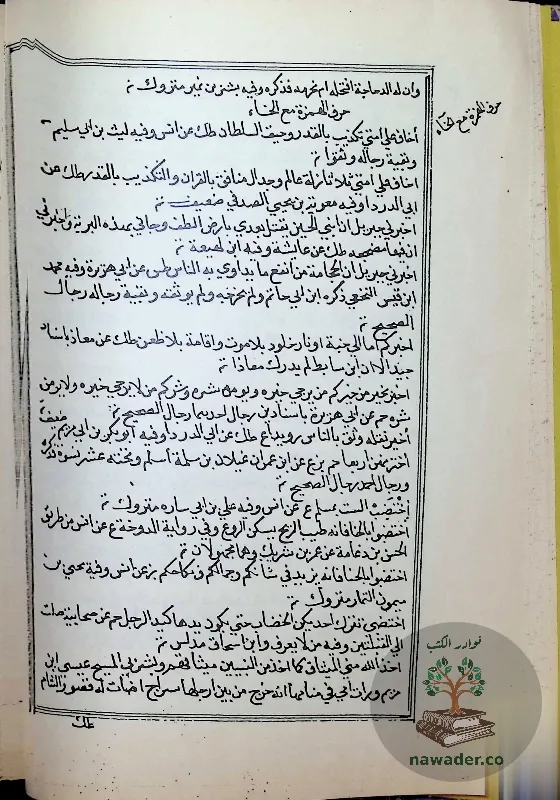 وان له الدجاجة افتحله ام نهر به فذكره وفيه بشر بن نمير متروك تم
حرف الهمزة مع الخاء
حرف الهمزة مع الخاء
أخاف على امتي تكذيب بالقدر وحيف السلطان طك عن انس وفيه ليث بن ابي سليم
وبقية رجاله وثقوا تم
اخاف على امتي ثلاثا زلة عالم وجدال منافق بالقران والتكذيب بالقدر طك عن
ابي الدرداء وفيه معوية بن يحيى الصدفي ضعيف تم
اخبرني جبريل ان ابني الحسين يقتل بعدي بارض الطف وجاءني بهذه التربة واخبرني
ان فيها مضجعه طك عن عائشة وفيه ابن لهيعة تم
اخبرني جبريل ان الحجامة من انفع ما يداوى به الناس طس عن ابي هريرة وفيه محمد
ابن قيس النخعي ذكره ابن ابي حاتم ولم يجرحه ولم يوثقه وبقية رجاله رجال
الصحيح تم
اخبركم اما الى جنة او نار خلود بلا موت واقامة بلا ظعن طك عن معاذ باسناد
جيد الا ان ابن سابط لم يدرك معاذا تم
اخبركم بخيركم من شركم من يرجى خيره ويومن شره وشركم من لا يرجى خيره ولا يومن
شره حم عن ابي هريرة باسنادين رجال احدهما رجال الصحيح تم
أخبر تقله وثق بالناس رويدا ع طك عن ابي الدرداء وفيه ابو بكر بن ابي مريم ضعيف
اختر منهن اربعا حم بز ع عن ابن عمر ان غيلان بن سلمة اسلم وتحته عشر نسوة فذكره
ورجال احمد رجال الصحيح تم
اختضبوا بالحنا فانه طيب الريح يسكن الروع وفي رواية الدوخة ع عن انس من طريق
الحسن بن دعامة عن عمر بن شريك وهما مجهولان تم
اختضبوا بالحنا فانه يزيد في شبابكم وجمالكم ونكاحكم بز عن انس وفيه يحيى بن
ميمون التمار متروك تم
اختضبي تترك احداكن الخضاب حتى تكون يدها كيد الرجل حم عن صحابية صلت
الى القبلتين وفيه من لا يعرف وابن اسحاق مدلس تم
اخذ الله مني الميثاق كما اخذ من النبيين ميثاقهم وبشر بي المسيح عيسى ابن
مريم ورات امي في منامها انه خرج من بين ارجلها سراج اضاءت له قصور الشام
طك
نوادر الكتب
nawader.co